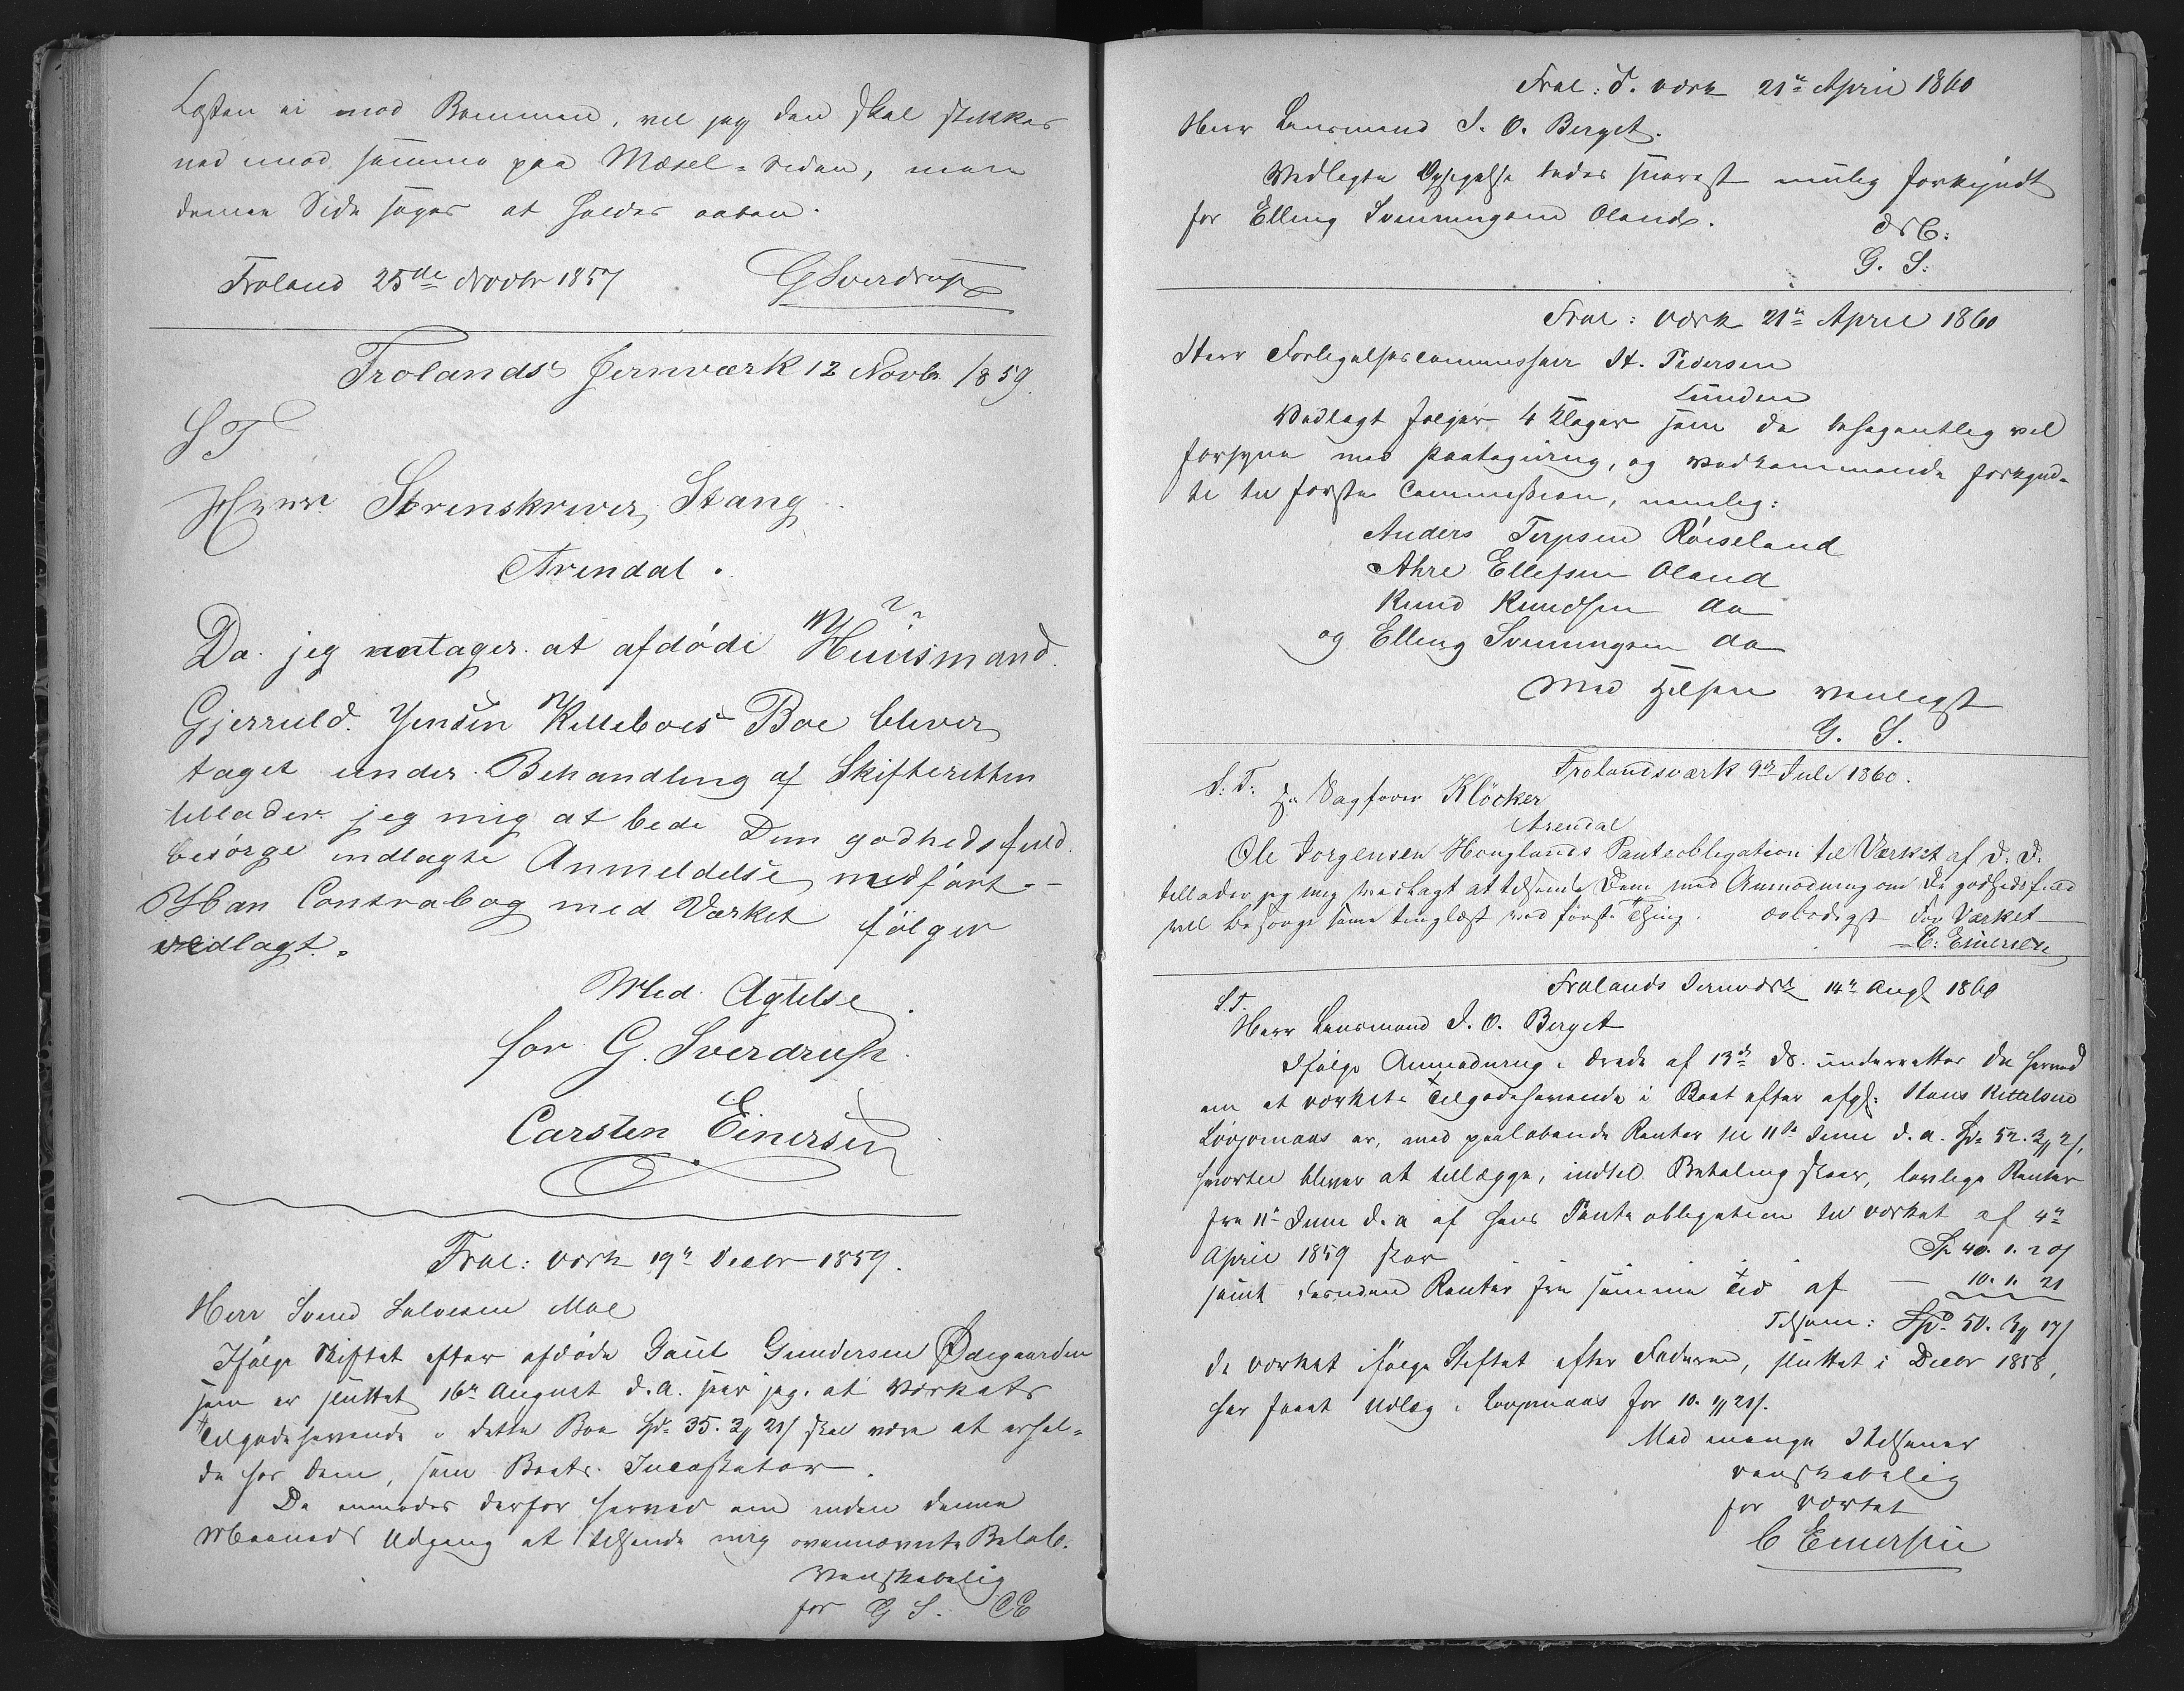 Losten ei mod Bommen, vel jeg den skal stikkes
ned imod samme paa Mæsel-siden, men
denne Side søges at holdes aaben.
Froland 25de Novbr 1857 GSverdrup
Frolands Jernværk 12 Novbr 1859.
ST
Herr Sorenskriver Stang
Arendal.
Da jeg antager at afdöde Huusmand
Gjeruld Jensen Killeboes Boe bliver
taget under Behandling af Skifteretten
tillader jeg mig at bede Dem godhedsfuld
besörge indlagte Anmeldelse medfört.-
Han Contrabog med Værket fölger
vedlagt.
Med Agtelse
for G. Sverdrup.
Carsten Einersen
Frol: værk 19de Decbr 1859.
Herr Svend Salvesen Moe
Ifølge Skiftet efter afdøde Gaut Gundersen Ødegaarden
som er sluttet 16de August d.A. seer jeg, at Værkets
Tilgodehavende i dette Boe Spd 35. 3 ƒ 21 s skal være at erhol-
de hos Dem, som Boets Incassator.
De anmodes derfor herved om inden denne
Maaneds Udgang at tilsende mig ovennævnte Beløb.
Venskabelig
for G S. CE
Frol: J. værk 21de April 1860
Herr Lensmand J. O. Berget.
Vedlagte Opsigelse bedes snarest mulig forkyndt
for Elling Svenningsen Oland.
G. S:
Frol: værk 21de April 1860
Herr Forligelsescommissair H. Pedersen
Lunden
Vedlagt følger 4 Klager som De behagentlig vil
forsyne med Paategning, og vedkommende forkynd-
te til første Commission, nemlig:
Anders Terjesen Röiseland
Ahre Ellefsen Oland
Knud Knudsen do
og Elling Svenningsen do
Med Hilsen venligst
G. S.
Frolandsværk 9de Juli 1860.
S: T: Hr Sagfører Klöcker
Arendal
Ole Jorgensen Houglands Panteobligation til Værket af D. D.
tillader jeg mig vedlagt at tilsende Dem med Anmodning om De godhedsfuld
vil besörge samme tinglæst ved först Thing. ærbödigst For Værket
C: Einersen
Frolands Jernværk 14de Augt 1860
S.T.
Herr Lensmand J. O. Berget
Ifølge Anmodning i Brev af 13de ds. underrettes De herved
om at værkets Tilgodehavende i Boet efter afg: Hans Kittelsen
Lövjomaas er, med paaløbende Renter til 11te Juni d. a. Spd 52. 3 ƒ 2 s,
hvortil bliver at tillægge, indtil Betaling skeer, lovlige Renter
fra 11te Juni d. a af hans Panteobligation til værket af 4de
April 1859 stor Sp 40. 1. 20 s
samt desuden Renter fra samme Tid af — 10. 1. 21
Tilsam: Spd 50. 3 ƒ 17 s
da værket ifølge Skiftet efter Faderen, sluttet i Decbr 1858,
har faaet Udlæg i Lovjomaas for 10. 1 ƒ 21 s.
Med mange Hilsener
venskabelig
for værket
C Einersen